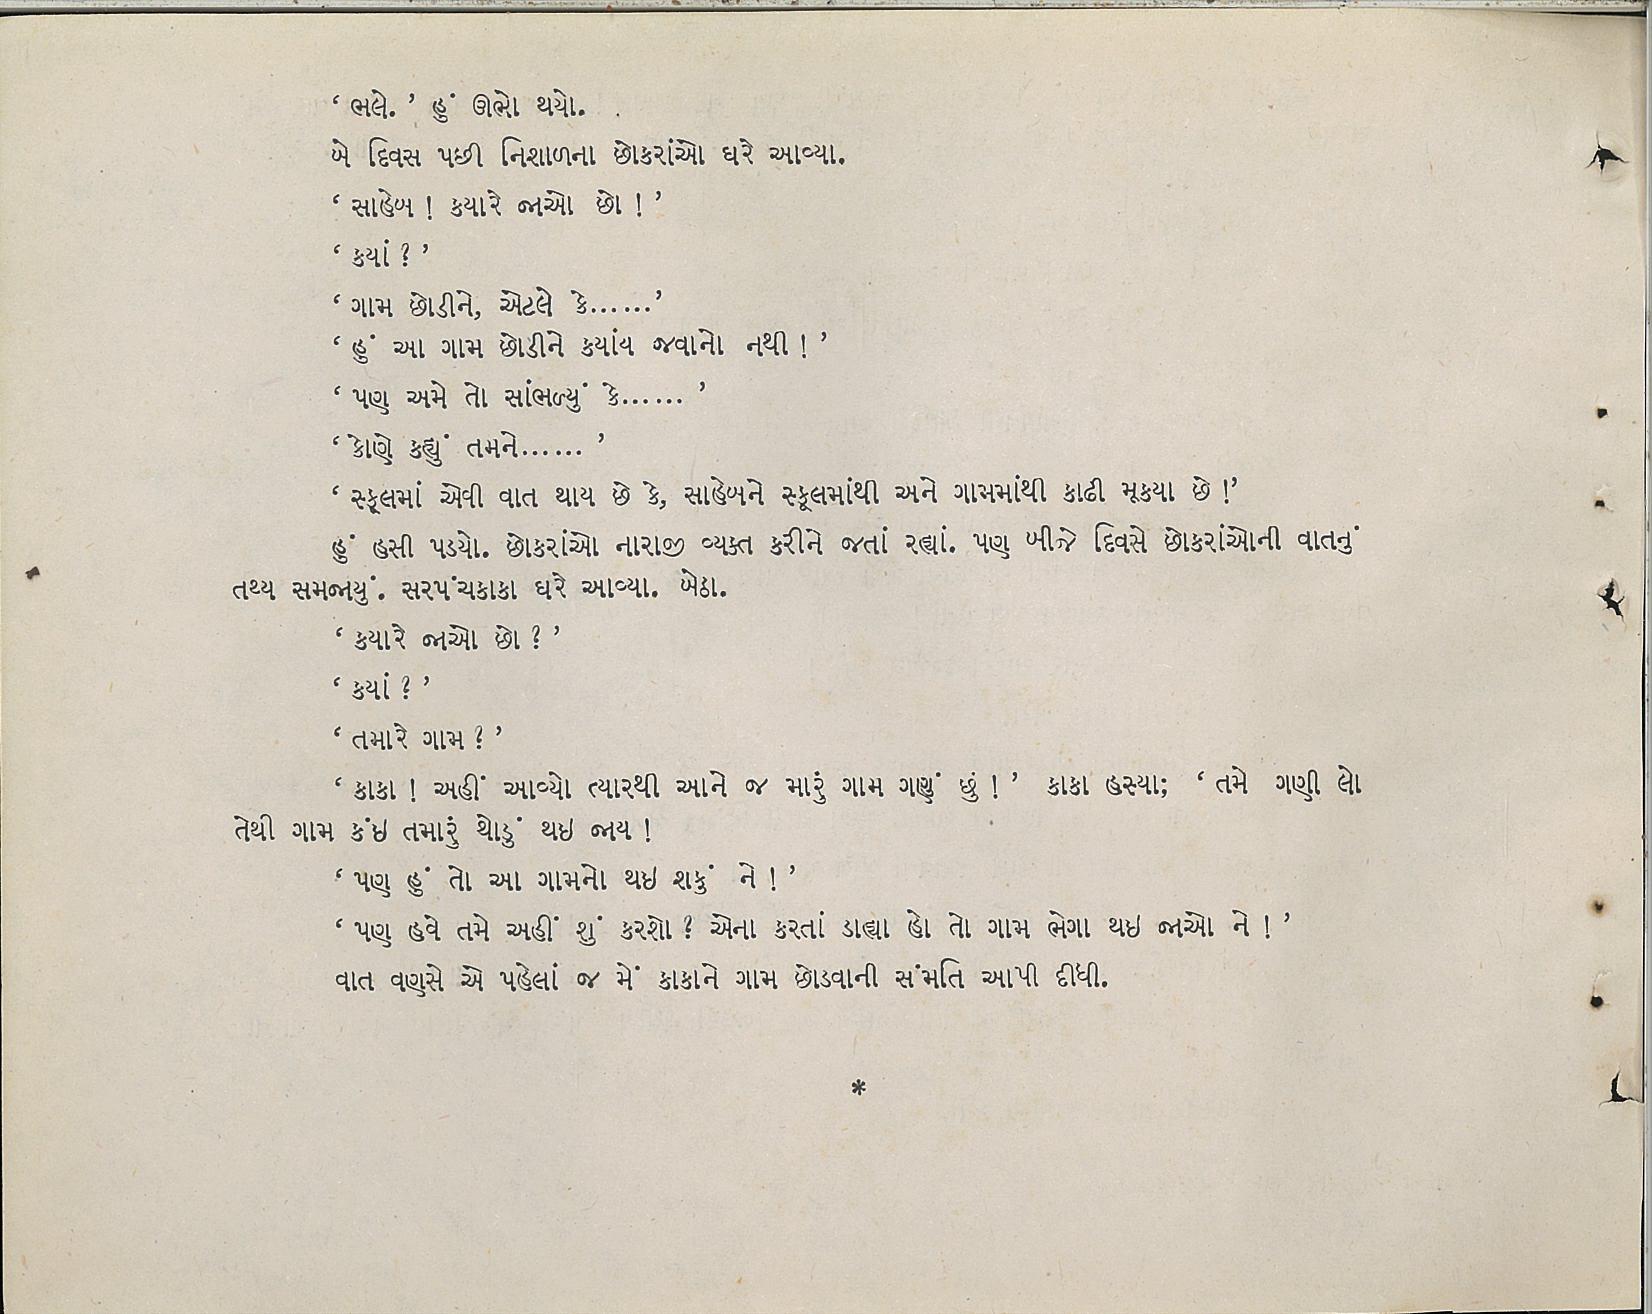 ‘ ભલે. ’ હું ઊભો થયો.
બે દિવસ પછી નિશાળના છોકરાંઓ ઘરે આવ્યા.
‘ સાહેબ ! કયારે જાઓ છો ! ’
‘ કયાં ? ’
‘ ગામ છોડીને, એટલે કે......’
‘ હું આ ગામ છોડીને કયાંય જવાનો નથી ! ’
‘ પણ અમે તો સાંભળ્યું કે...... ’
‘ કોણે કહ્યું તમને...... ’
‘ સ્કૂલમાં એવી વાત થાય છે કે, સાહેબને સ્કૂલમાંથી અને ગામમાંથી કાઢી મૂકયા છે !’
હું હસી પડયો. છોકરાંઓ નારાજી વ્યક્ત કરીને જતાં રહ્યાં. પણ બીજે દિવસે છોકરાંઓની વાતનું
તથ્ય સમજાયું. સરપંચકાકા ઘરે આવ્યા. બેઠા.
‘ કયારે જાઓ છો ? ’
‘ કયાં ? ’
‘ તમારે ગામ ? ’
‘ કાકા ! અહીં આવ્યો ત્યારથી આને જ મારું ગામ ગણું છું ! ’ કાકા હસ્યા; ‘ તમે ગણી લો
તેથી ગામ કંઇ તમારું થોડું થઇ જાય !
‘ પણ હું તો આ ગામનો થઇ શકું ને ! ’
‘ પણ હવે તમે અહીં શું કરશો ? એના કરતાં ડાહ્યા હો તો ગામ ભેગા થઇ જાઓ ને ! ’
વાત વણસે એ પહેલાં જ મેં કાકાને ગામ છોડવાની સંમતિ આપી દીધી.
*